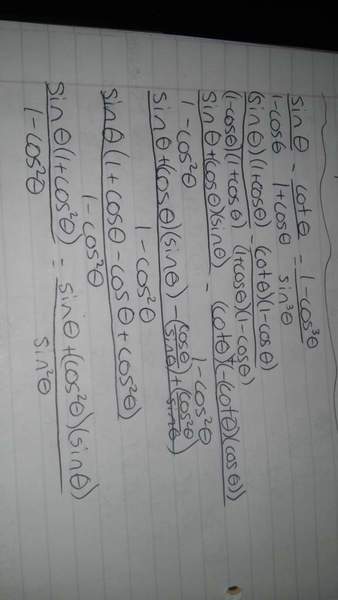 sinθ/1-cosθ - cotθ/1+cosθ = 1-cos³θ/sin³θ
(sinθ)(1+cosθ)/(1-cosθ)(1+cosθ) - (cotθ)(1-cosθ)/(1+cosθ)(1-cosθ)
sinθ+(cosθ)(sinθ)/1-cos²θ - (cotθ)+(-(cotθ)(cosθ))/1-cos²θ
sinθ+(cosθ)(sinθ) - (cosθ/sinθ)+(cos²θ/sinθ)/1-cos²θ
sinθ(1+cosθ-cosθ+cos²θ)/1-cos²θ
sinθ(1+cos²θ)/1-cos²θ = sinθ+(cos²θ)(sinθ)/sin²θ